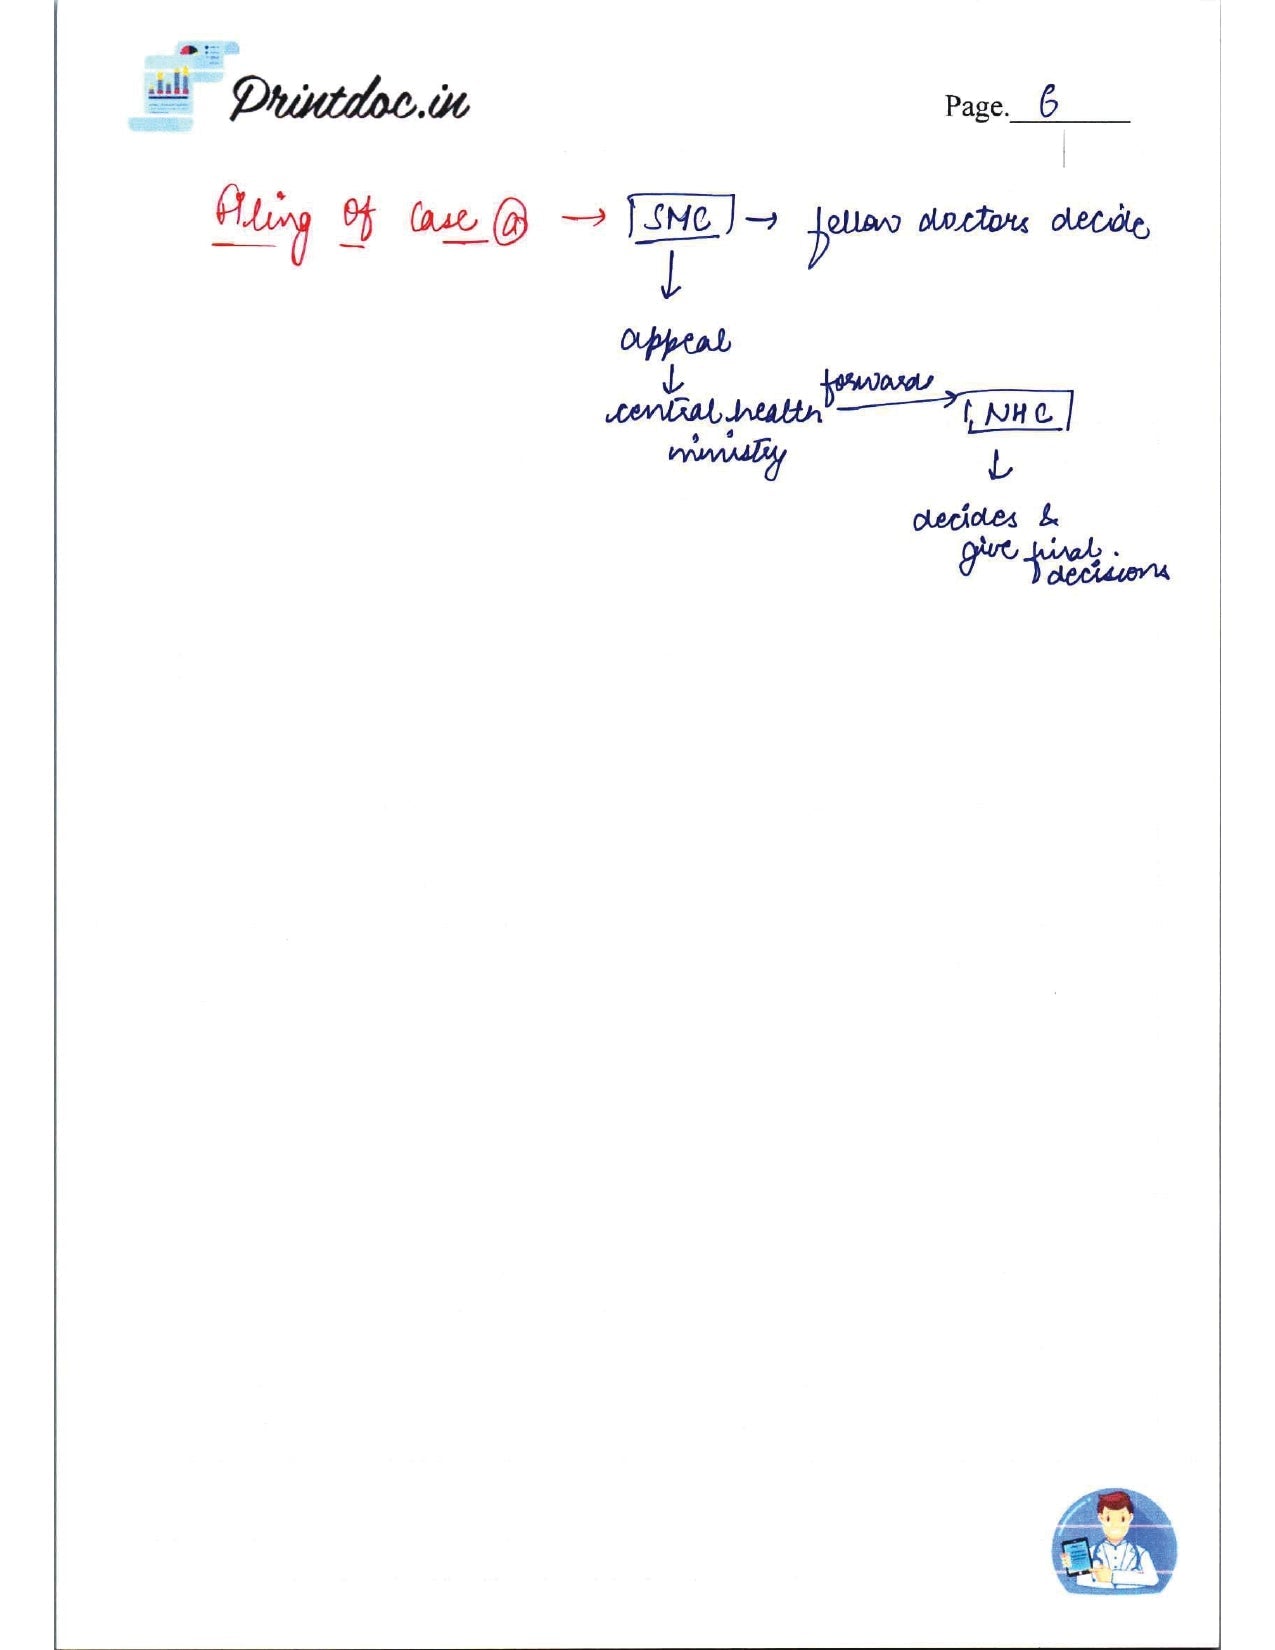 Printdoc.in
Page. 6
Filing of case @ → SMC → fellow doctors decide
↓
appeal
↓
forwards
central health → NHC
ministry
↓
decides &
give final
decisions